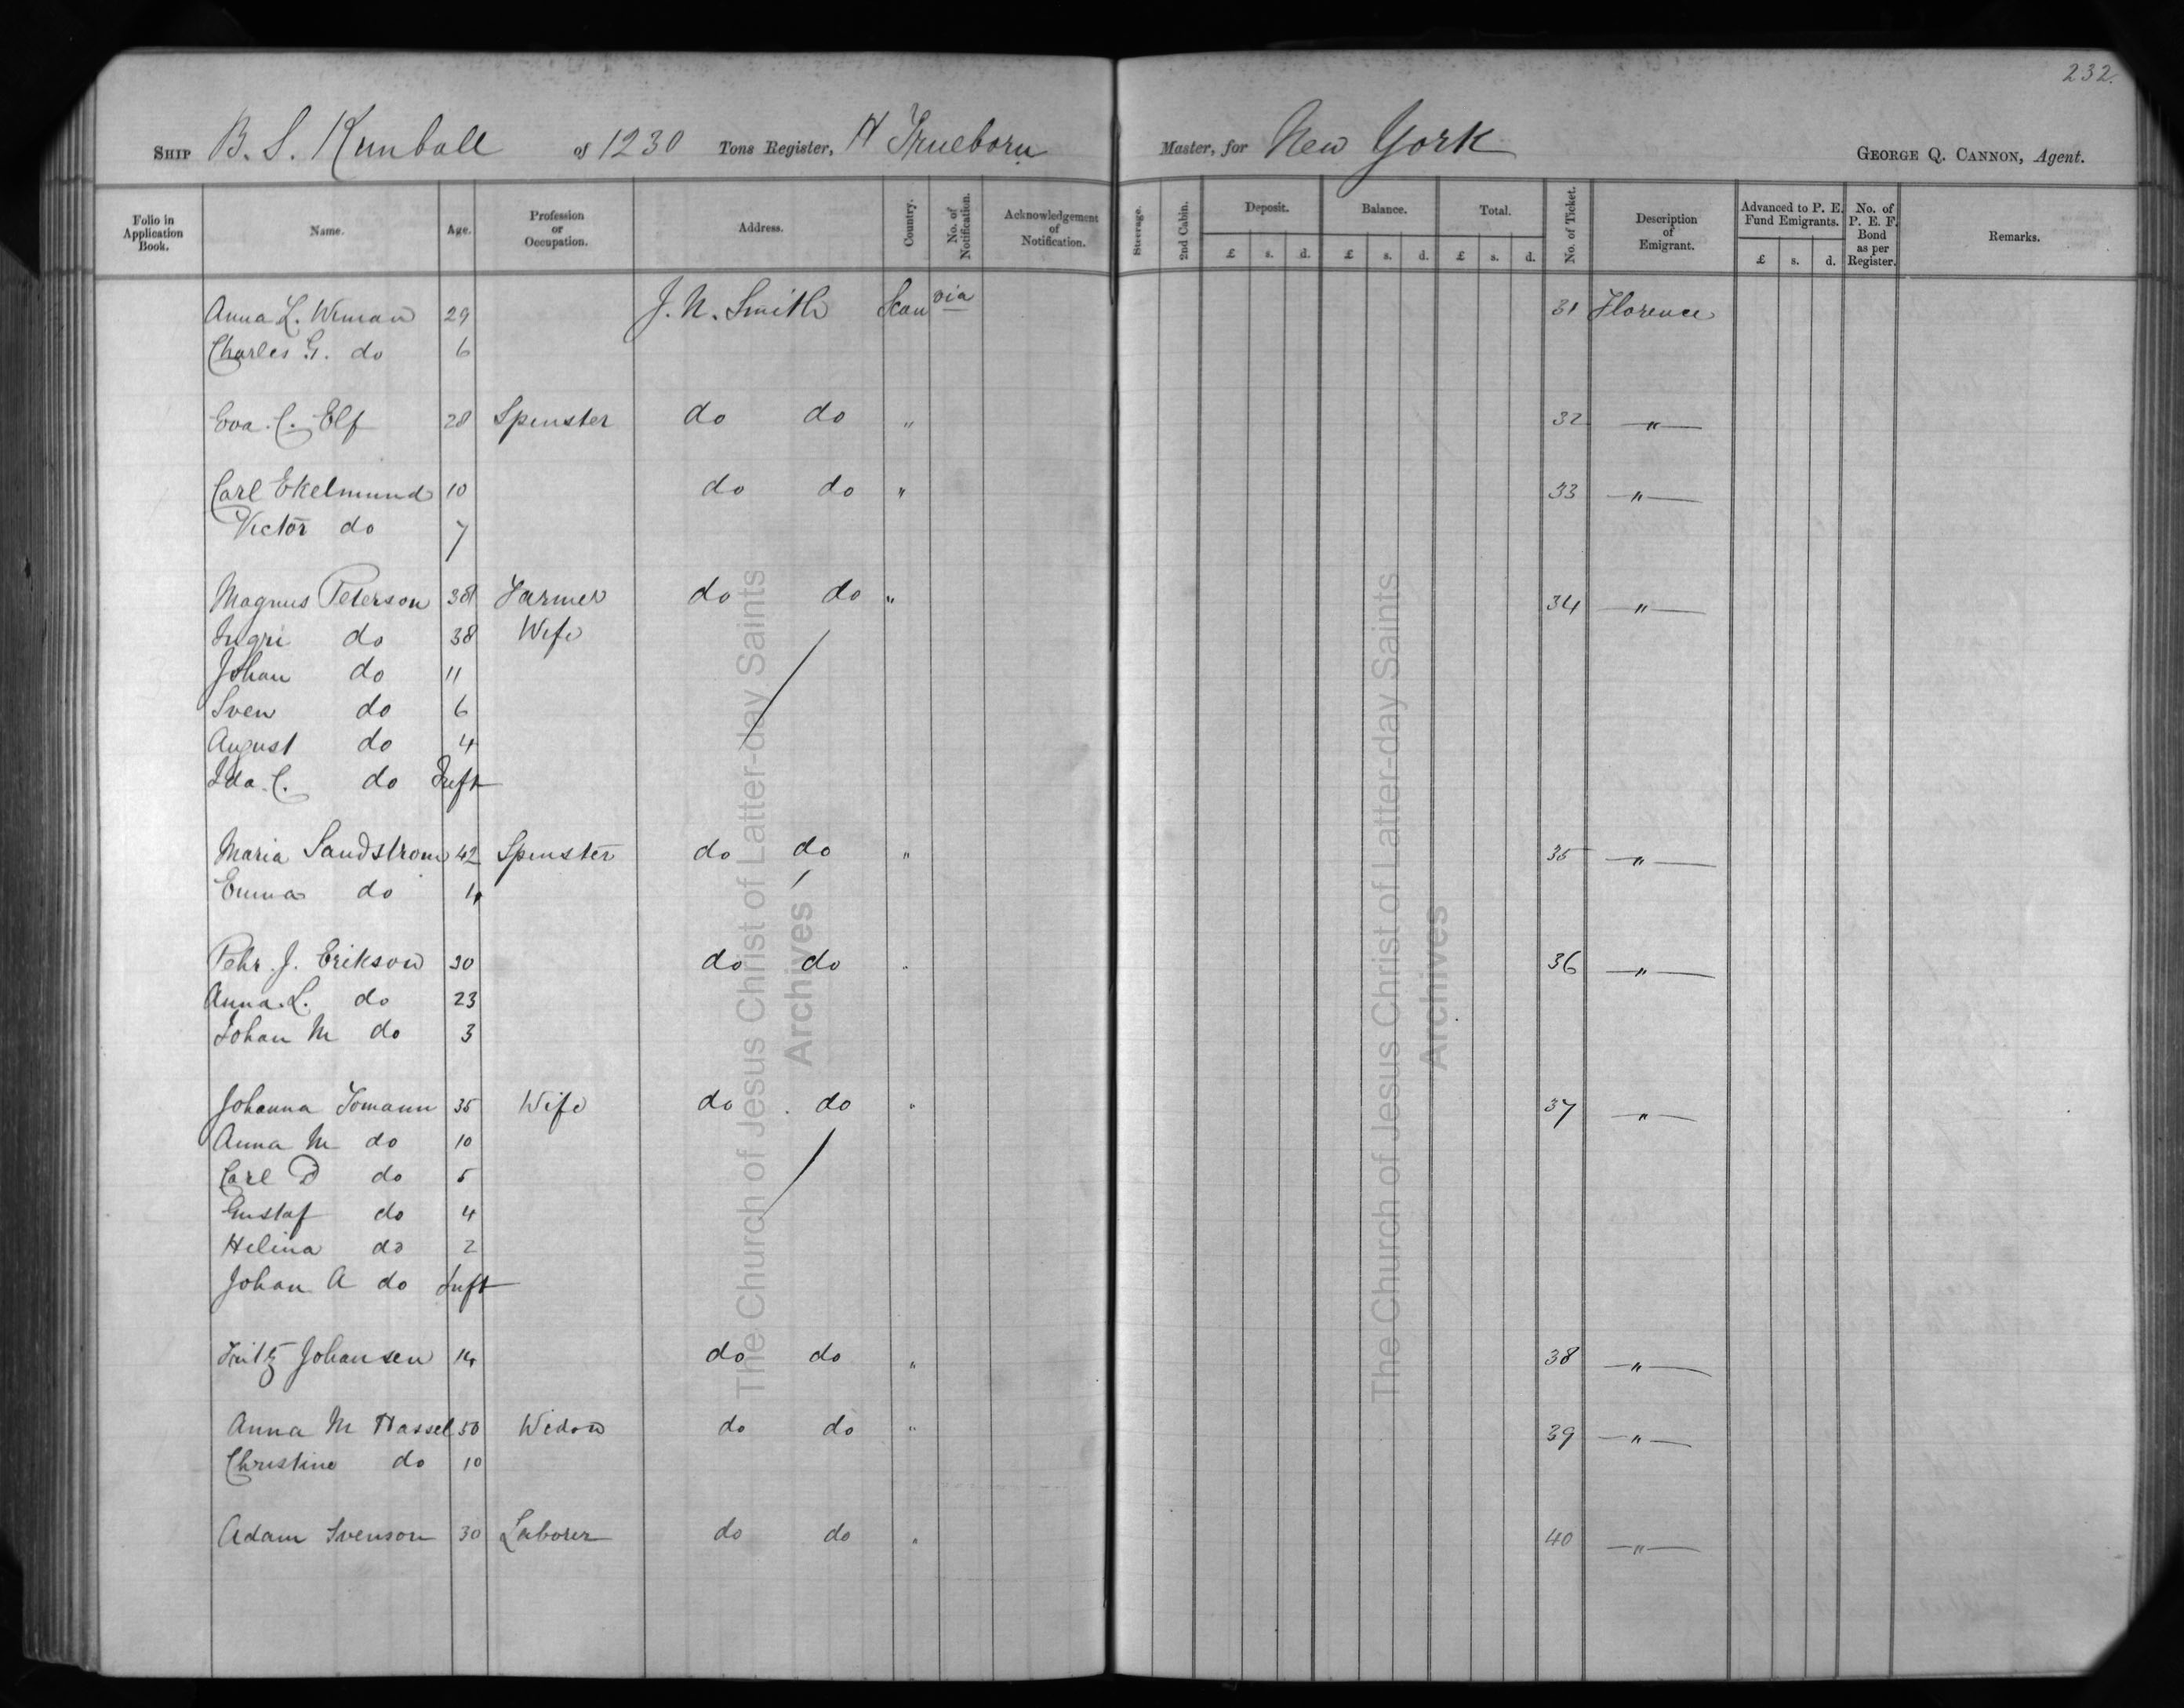 232.
SHIP B. S. Kimball of 1230 Tons Register, H Trueborn Master, for New York GEORGE Q. CANNON, Agent.
Folio in Application Book. Name. Age. Profession or Occupation. Address. Country. No. of Notification. Acknowledgement of Notification. Steerage. 2nd Cabin. Deposit. £ s. d. Balance. £ s. d. Total. £ s. d. No. of Ticket. Description of Emigrant. Advanced to P. E. Fund Emigrants. £ s. d. No. of P. E. F. Bond as per Register. Remarks.
Anna L. Wiman 29 J. N. Smith Scanvia 31 Florence
Charles G. do 6
Eva C. Elf 28 Spinster do do " 32 — " —
Carl Ekelmund 10 do do " 33 — " —
Victor do 7
Magnus Peterson 38 Farmer do do " 34 — " —
Ingri do 38 Wife
Johan do 11
Sven do 6
August do 4
Ida C. do Inft
Maria Sandstrom 42 Spinster do do " 35 — " —
Emma do 4
Pehr. J. Erikson 30 do do " 36 — " —
Anna L. do 23
Johan M do 3
Johanna Tomann 35 Wife do do " 37 — " —
Anna M do 10
Carl D do 5
Gustaf do 4
Helina do 2
Johan A do Inft
Fritz Johansen 14 do do " 38 — " —
Anna M Hassel 50 Widow do do " 39 — " —
Christine do 10
Adam Svenson 30 Laborer do do " 40 — " —
The Church of Jesus Christ of Latter-day Saints
Archives
The Church of Jesus Christ of Latter-day Saints
Archives